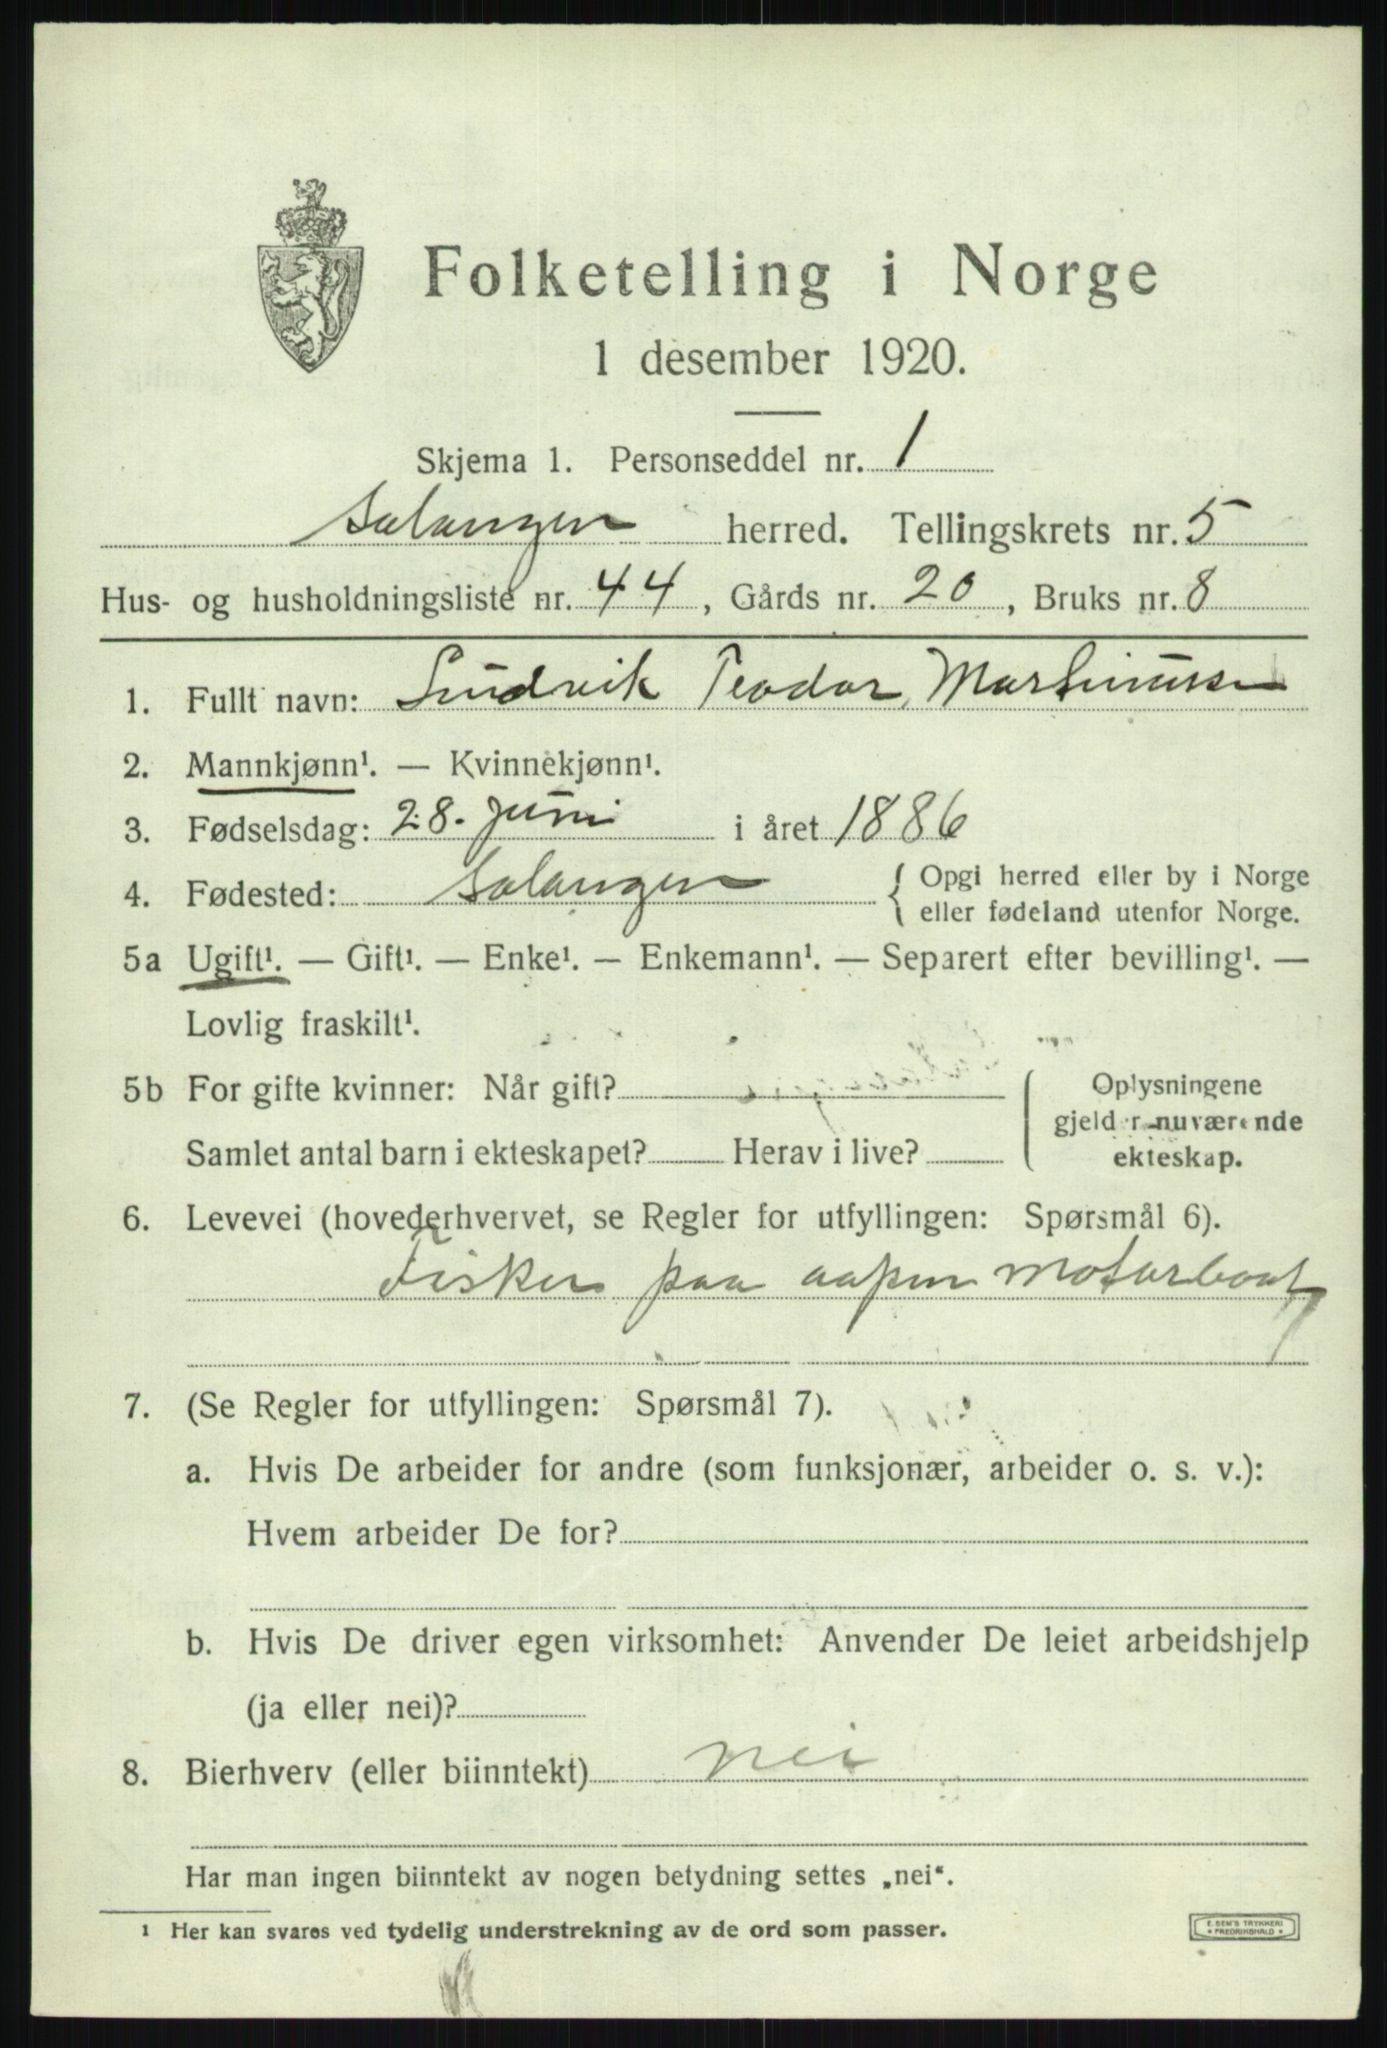 Folketelling i Norge
1 desember 1920.
Skjema 1. Personseddel nr. 1
Salangen herred. Tellingskrets nr. 5
Hus- og husholdningsliste nr. 44, Gårds nr. 20, Bruks nr. 8
1. Fullt navn: Ludvik Teodor Martinussen
2. Mannkjønn¹. — Kvinnekjønn¹.
3. Fødselsdag: 28. juni i året 1886
4. Fødested: Salangen { Opgi herred eller by i Norge
eller fødeland utenfor Norge.
5a Ugift¹. — Gift¹. — Enke¹. — Enkemann¹. — Separert efter bevilling¹. —
Lovlig fraskilt¹.
5b For gifte kvinner: Når gift? ( Oplysningene
gjelder nuværende
Samlet antal barn i ekteskapet? Herav i live? ekteskap.
6. Levevei (hovederhvervet, se Regler for utfyllingen: Spørsmål 6).
Fisker paa aapen motorboat
7. (Se Regler for utfyllingen: Spørsmål 7).
a. Hvis De arbeider for andre (som funksjonær, arbeider o. s. v.):
Hvem arbeider De for?
b. Hvis De driver egen virksomhet: Anvender De leiet arbeidshjelp
(ja eller nei)?
8. Bierhverv (eller biinntekt) nei
Har man ingen biinntekt av nogen betydning settes „nei“.
¹ Her kan svares ved tydelig understrekning av de ord som passer.
E. SEM'S TRYKKERI
* FREDRIKSHALD *